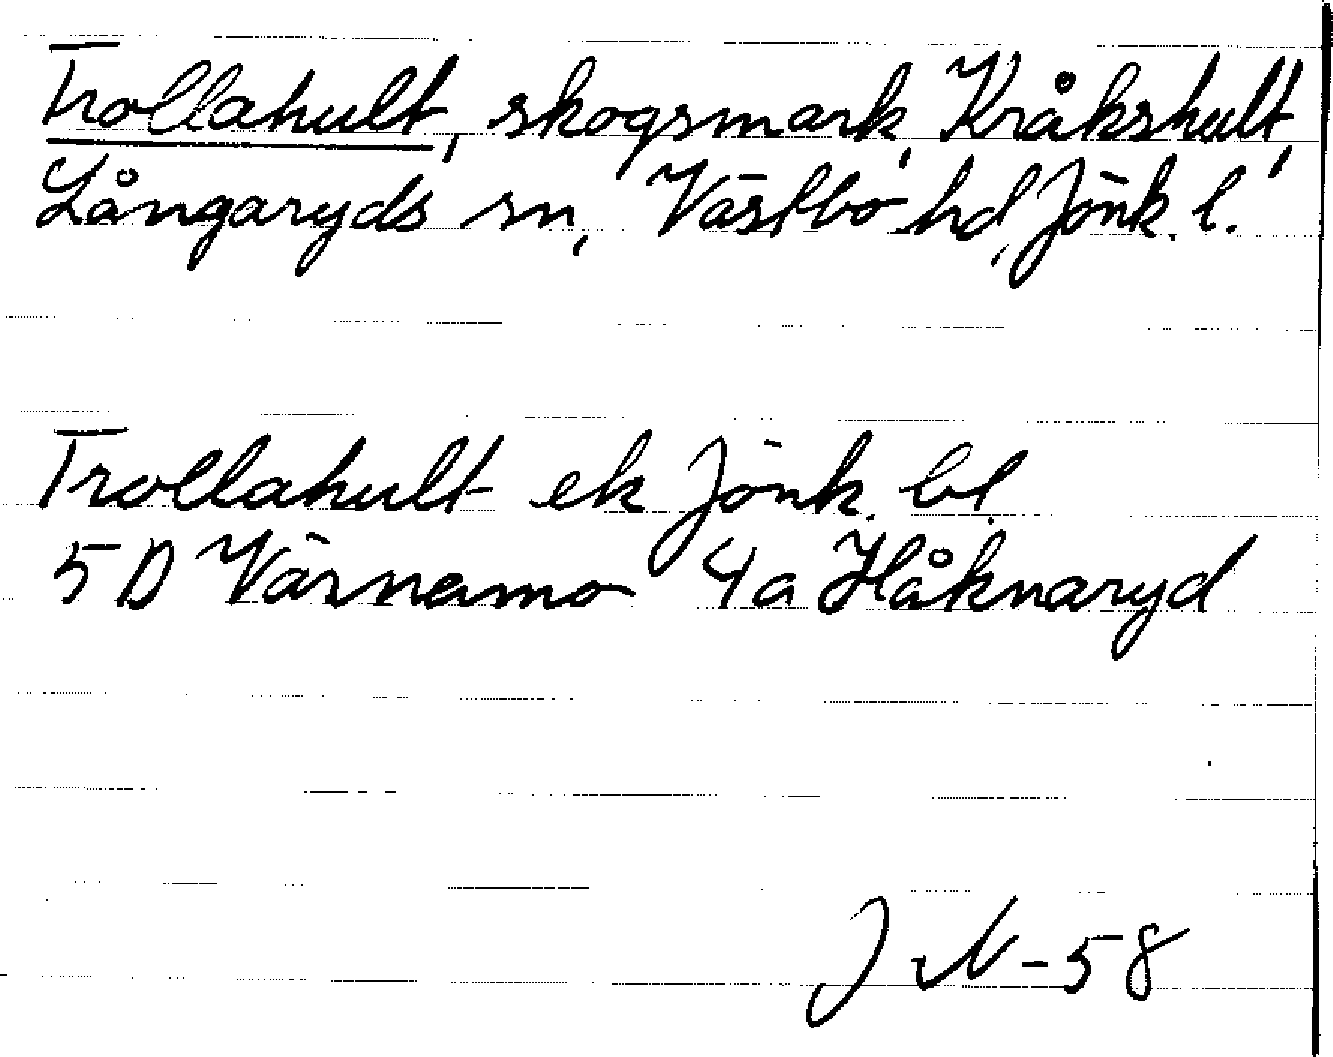 Trollahult, skogsmark, Kråkshult,
Långaryds sn, Västbo hd, Jönk. l.
Trollahult ek Jönk. bl.
5 D Värnamo 4a Håknaryd
J N-58